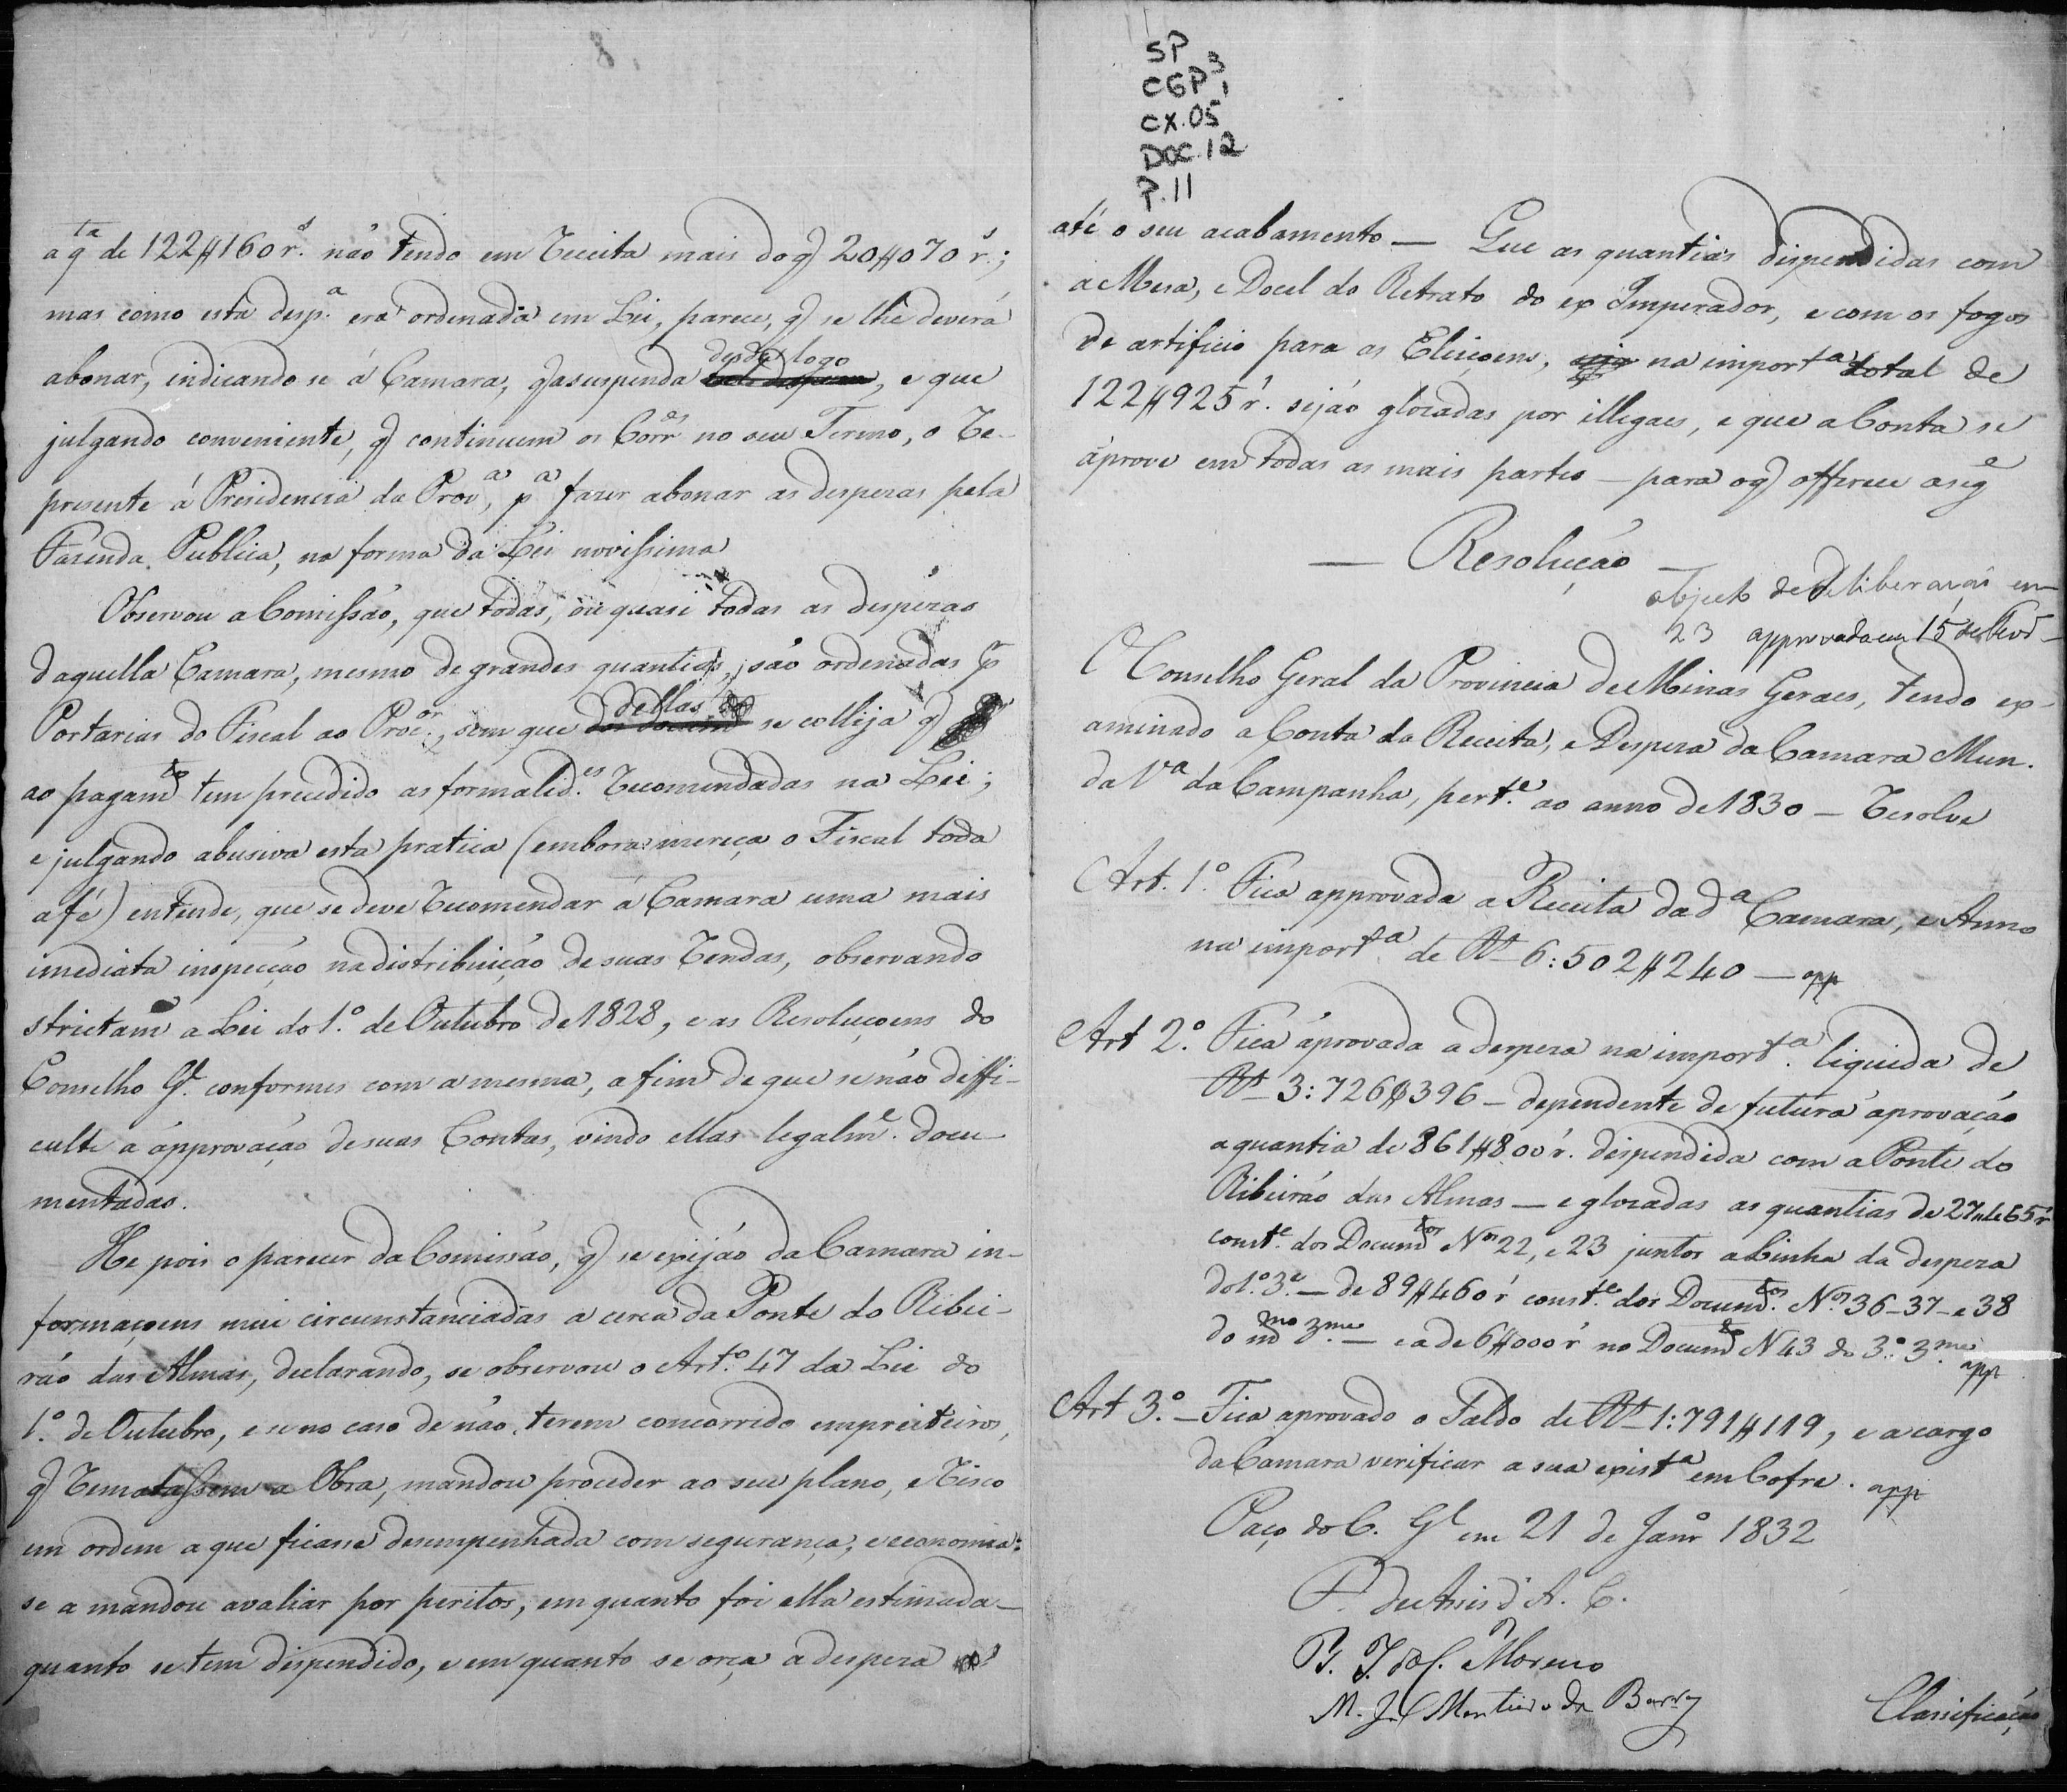 8.
a q.ta de 122$160 r.s não tendo em Receita mais do q 20$070 r.s;
mas como esta desp.a era ordenada em Lei, parece, q se lhe deverá
abonar, indicando se á Camara, q a suspenda desde logo, e que
julgando conveniente, q continuem os Corr.es no seu Termo, o Re-
presente á Presidencia da Prov.a, p.a fazer abonar as despezas pela
Fazenda Publica, na forma da Lei novissima
Observou a Comissão, que todas, ou quasi todas as despezas
daquella Camara, mesmo de grandes quantias, são ordenadas p
Portarias do Fiscal ao Proc.or, sem que dellas se collija q
ao pagam.to tem precedido as formalid.es Recomendadas na Lei;
e julgando abusiva esta pratica (embora mereça o Fiscal toda
a fé) entende, que se deve Recomendar á Camara uma mais
imediata inspecção na distribuição de suas Rendas, observando
strictam.e a Lei do 1.o de Outubro de 1828, e as Resoluçoens do
Conselho G.l conformes com a mesma, a fim de que se não diffi-
culte a approvação de suas Contas, vindo ellas legalm.e docu-
mentadas.
He pois o parecer da Comissão, q se exijão da Camara in-
formaçoens mui circunstanciadas a cerca da Ponte do Ribei-
rão das Almas, declarando, se observou o Art.o 47 da Lei do
1.o de Outubro, e se no caso de não terem concorrido empreiteiros,
q Rematassem a Obra, mandou proceder ao seu plano, e Risco
em ordem a que ficasse desempenhada com segurança, e economia:
se a mandou avaliar por peritos, em quanto foi ella estimada -
quanto se tem dispendido, e em quanto se orça a despeza
SP
CGP 3
CX.05
DOC.12
P.11
até o seu acabamento — Que as quantias dispendidas com
a Mesa, e Docel do Retrato do ex Imperador, e com os fogos
de artificio para as Eleiçoens, na import.a total de
122$925 r. sejão glozadas por illegaes, e que a Conta se
aprove em todas as mais partes — para o q offerece a seg.e
— Resolução —
objecto de deliberação em
23 approvada em 15 de Fever.
O Conselho Geral da Provincia de Minas Geraes, tendo ex-
aminado a Conta da Receita, e Despeza da Camara Mun.
da V.a da Campanha, pert.e ao anno de 1830 — Resolve
Art. 1.o Fica approvada a Receita da d.a Camara, e Anno
na import.a de R.s 6:502$240 — app
Art 2.o Fica aprovada a despeza na import.a liquida de
R.s 3:726$396 — dependente de futura aprovação
a quantia de 861$800 r. dispendida com a Ponte do
Ribeirão das Almas — e glozadas as quantias de 27$465 r
const.e dos Docum.tos N.os 22, e 23 juntos a Linha da despeza
do 1.o 3.e — de 89$460 r const.e dos Docum.tos N.os 36-37-e 38
do m.mo 3.me — e a de 6$000 r no Docum.to N 43 do 3.o 3.me app
Art 3.o — Fica aprovado o Saldo de R.s 1:791$119, e a cargo
da Camara verificar a sua exist.a em Cofre. app
Paço do C. G.l em 21 de Janr.o 1832
F. de Assis d'A. C.
J. do C. Moreno
M. J. Monteiro de Barros
Classificação